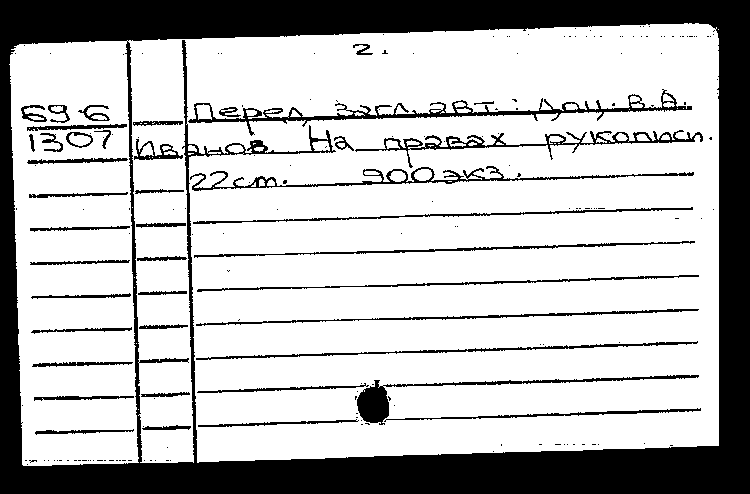 2.
69·6 Перед загл. авт.: доц. В.А.
1307 Иванов. На правах рукописи.
22 cm. 900 экз.